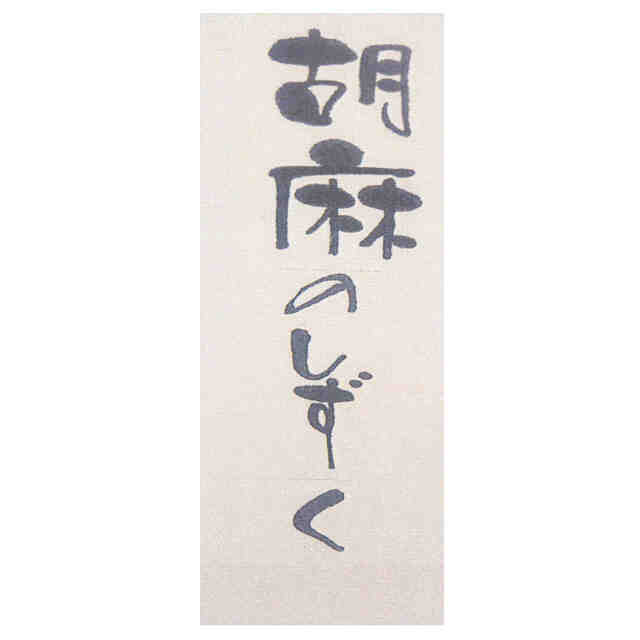 胡麻のしずく